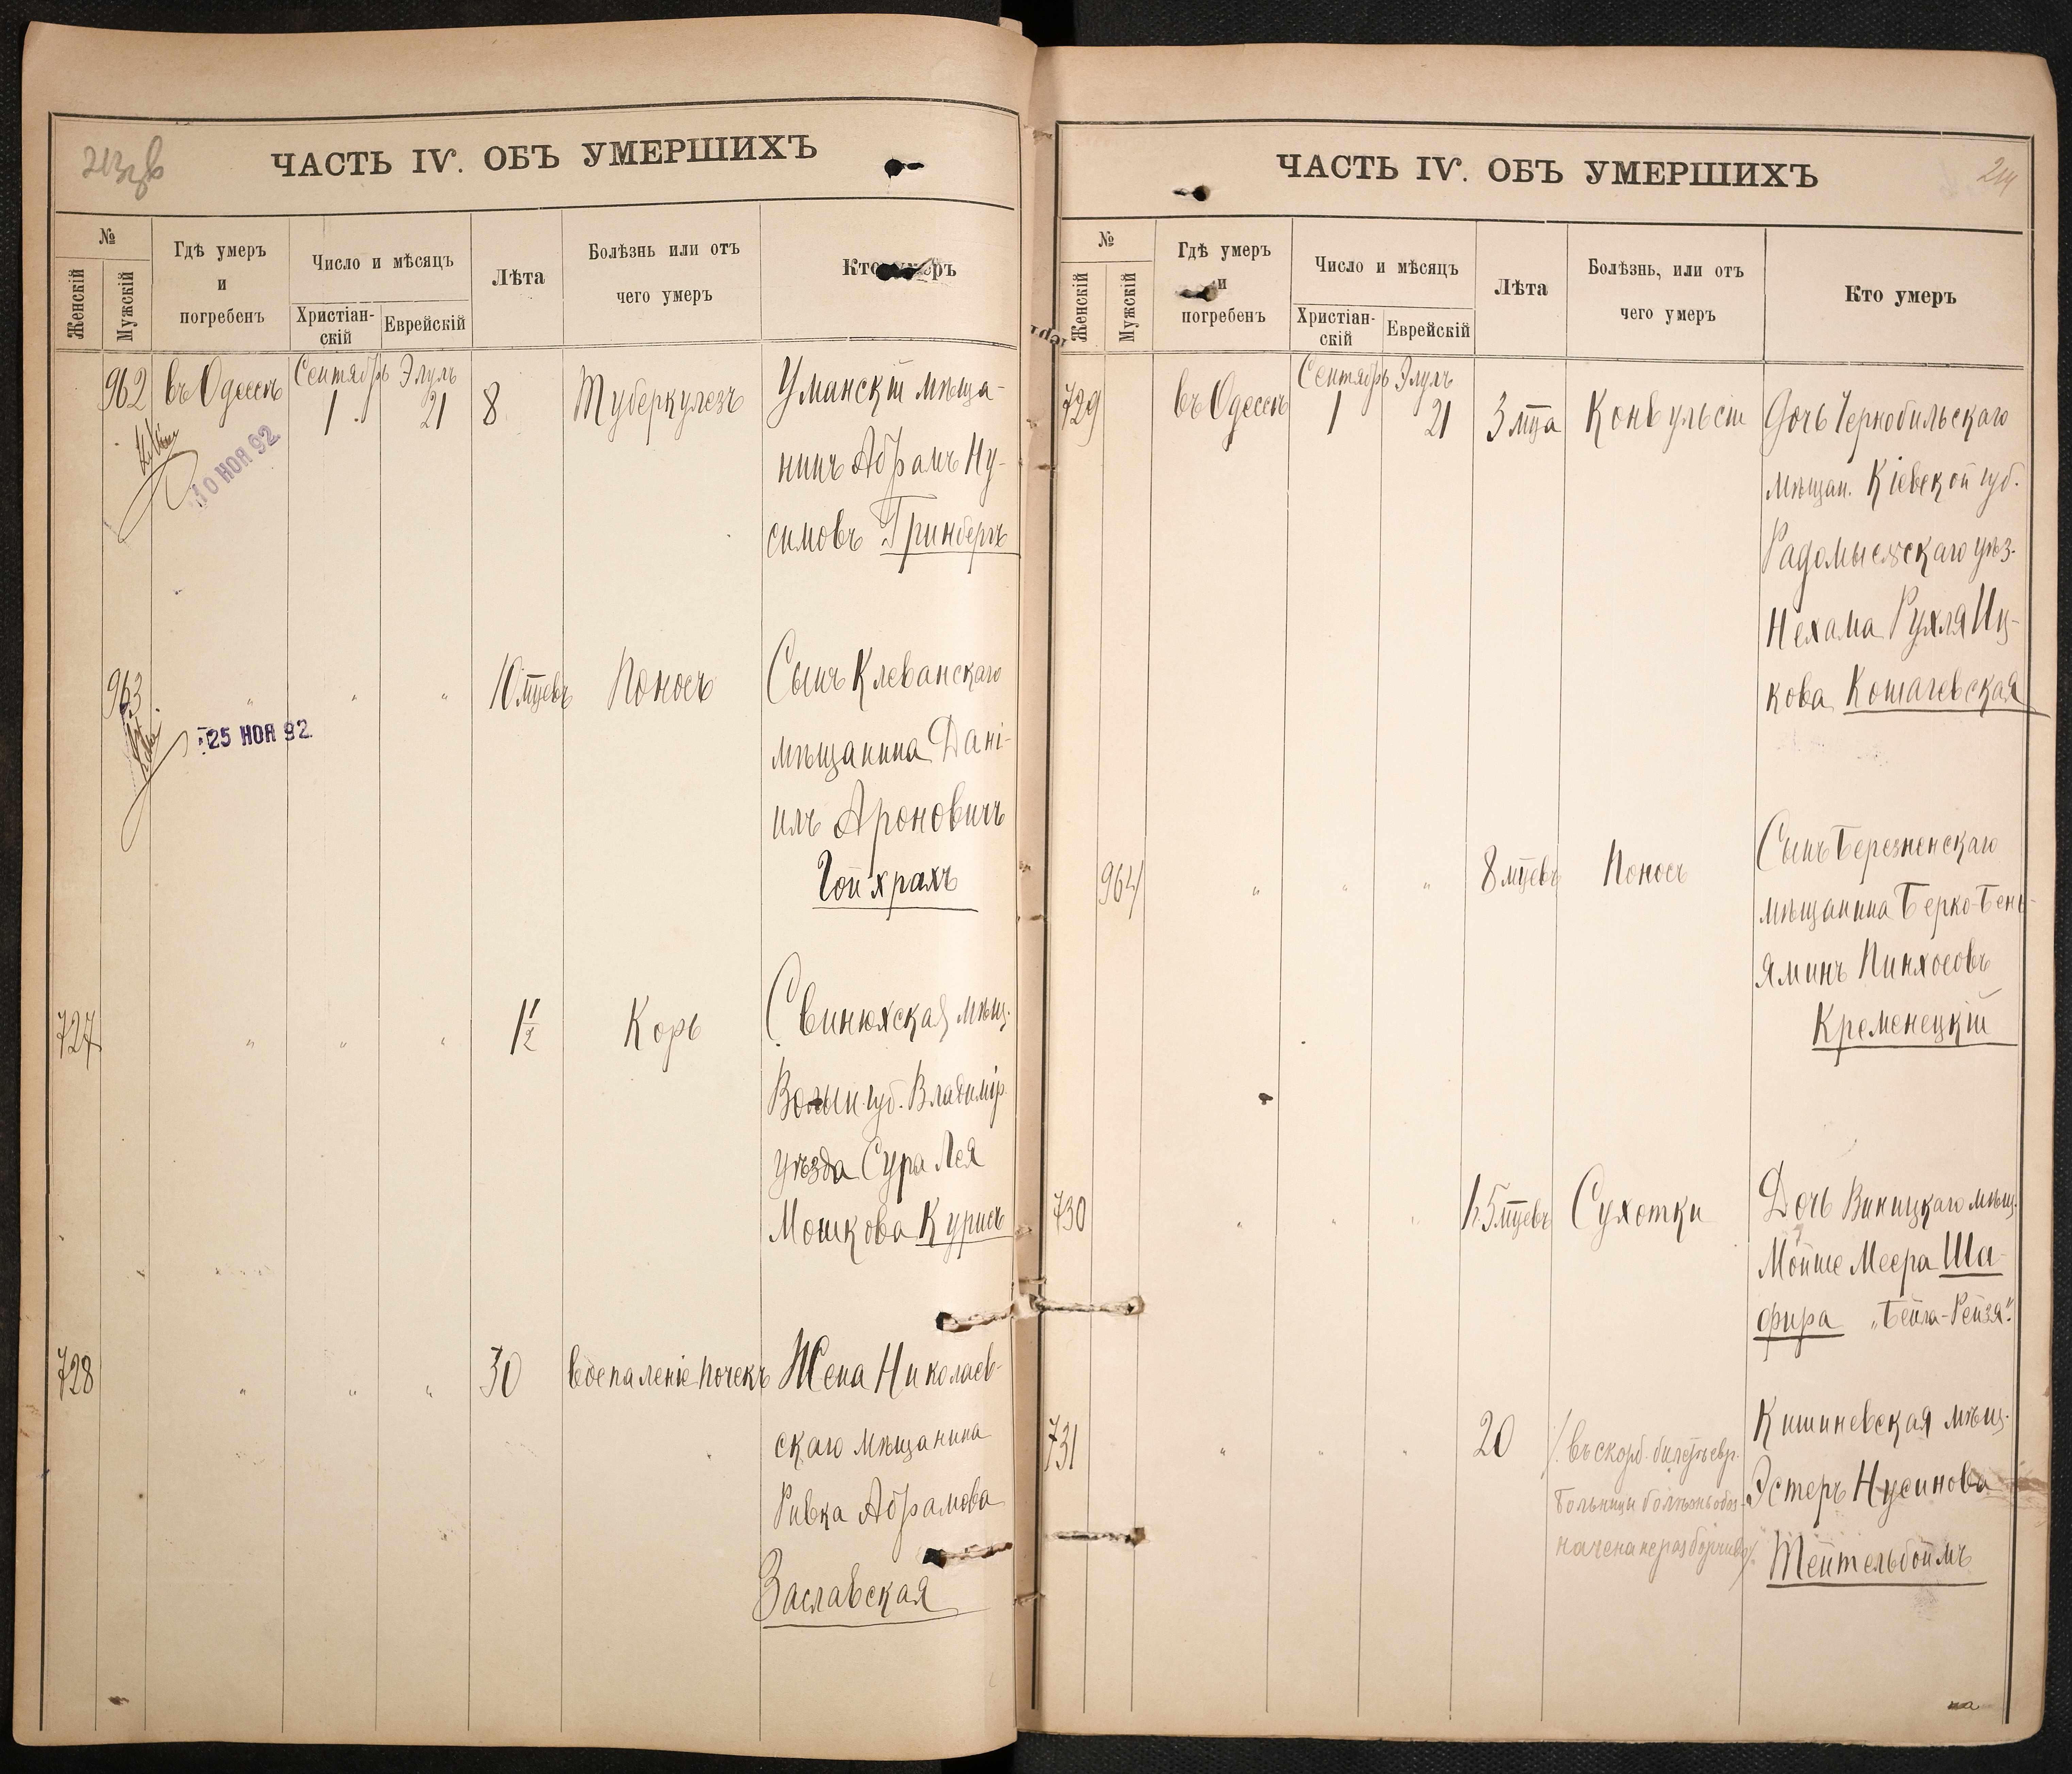 ЧАСТЬ IV. ОБЪ УМЕРШИХЪ
№
Женскій
Мужскій
Гдѣ умеръ
и
погребенъ
Число и мѣсяцъ
Христіан-
скій
Еврейскій
Лѣта
Болѣзнь или отъ
чего умеръ
Кто умеръ
962 въ Одессѣ Сентябрь 1 Элулъ 21 8 Туберкулезъ Уманскій мѣща-
нинъ Абрамъ Ну-
симовъ Гринбергъ
10 НОЯ 92
963 " " " 10 мцевъ Поносъ Сынъ Клеванскаго
мѣщанина Дані-
илъ Ароновичъ
Гойхрахъ
25 НОЯ 92
727 " " " 1 1/2 Корь Свинюхская мѣщ.
Волын. губ. Владимір.
уѣзда Сура Лея
Мошкова Курисъ
728 " " " 30 воспаленіе почекъ Жена Николаев-
скаго мѣщанина
Ривка Абрамова
Заславская
ЧАСТЬ IV. ОБЪ УМЕРШИХЪ
214
№
Женскій
Мужскій
Гдѣ умеръ
и
погребенъ
Число и мѣсяцъ
Христіан-
скій
Еврейскій
Лѣта
Болѣзнь, или отъ
чего умеръ
Кто умеръ
729 въ Одессѣ Сентябрь 1 Элулъ 21 3 мца Конвульсіи Дочь Чернобильскаго
мѣщан. Кіевской губ.
Радомысльскаго уѣз.
Нехама Рухля Иц-
кова Кошачевская
964 " " " 8 мцевъ Поносъ Сынъ Березненскаго
мѣщанина Берко-Бень-
яминъ Пинхосовъ
Кременецкій
730 " " " 1. 5 мцевъ Сухотки Дочь Виницкаго мѣщ.
Мойше Меера Ша-
фира „Бейла-Рейзя".
731 " " " 20 /. въ скорб. билетѣ евр. Кишиневская мѣщ.
больницы болѣзнь обоз- Эстеръ Нусинова
начена неразборчиво /. Тейтельбоймъ